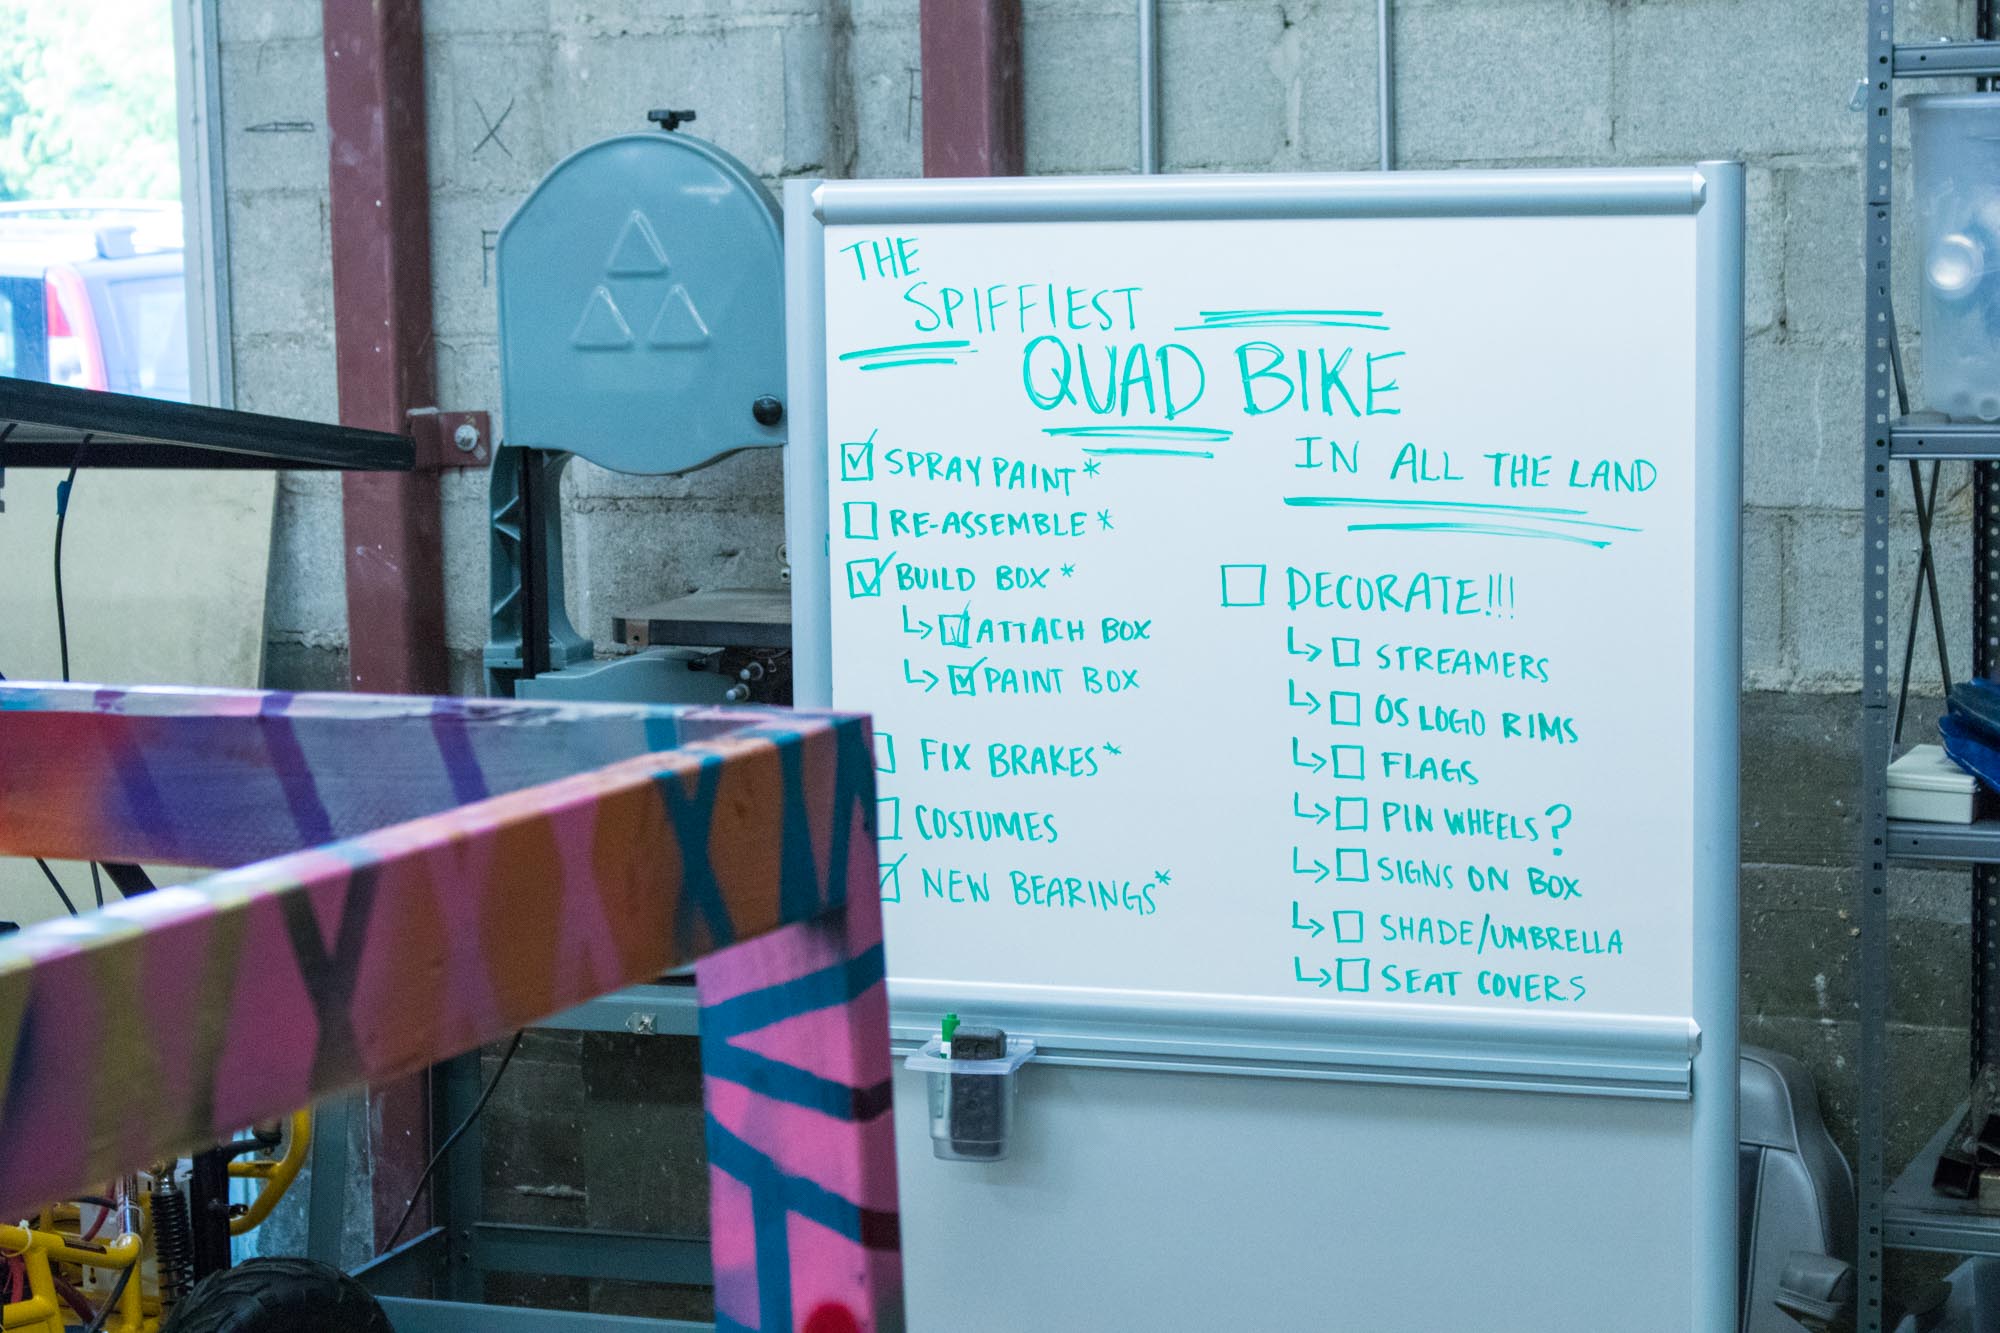 THE
SPIFFIEST
QUAD BIKE
IN ALL THE LAND
☑ SPRAY PAINT*
☐ RE-ASSEMBLE*
☑ BUILD BOX*
↳ ☑ ATTACH BOX
↳ ☑ PAINT BOX
☐ FIX BRAKES*
☐ COSTUMES
☑ NEW BEARINGS*
☐ DECORATE!!!
↳ ☐ STREAMERS
↳ ☐ OS LOGO RIMS
↳ ☐ FLAGS
↳ ☐ PIN WHEELS?
↳ ☐ SIGNS ON BOX
↳ ☐ SHADE/UMBRELLA
↳ ☐ SEAT COVERS
X
F
F